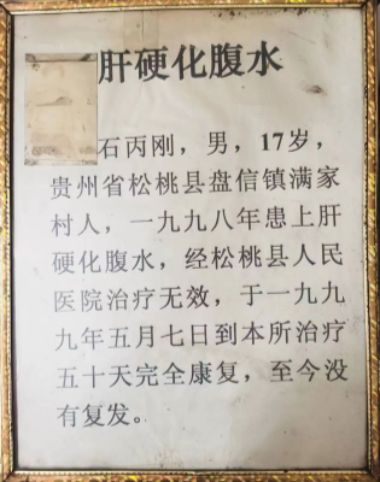 肝硬化腹水
石丙刚，男，17岁，
贵州省松桃县盘信镇满家
村人，一九九八年患上肝
硬化腹水，经松桃县人民
医院治疗无效，于一九九
九年五月七日到本所治疗
五十天完全康复，至今没
有复发。